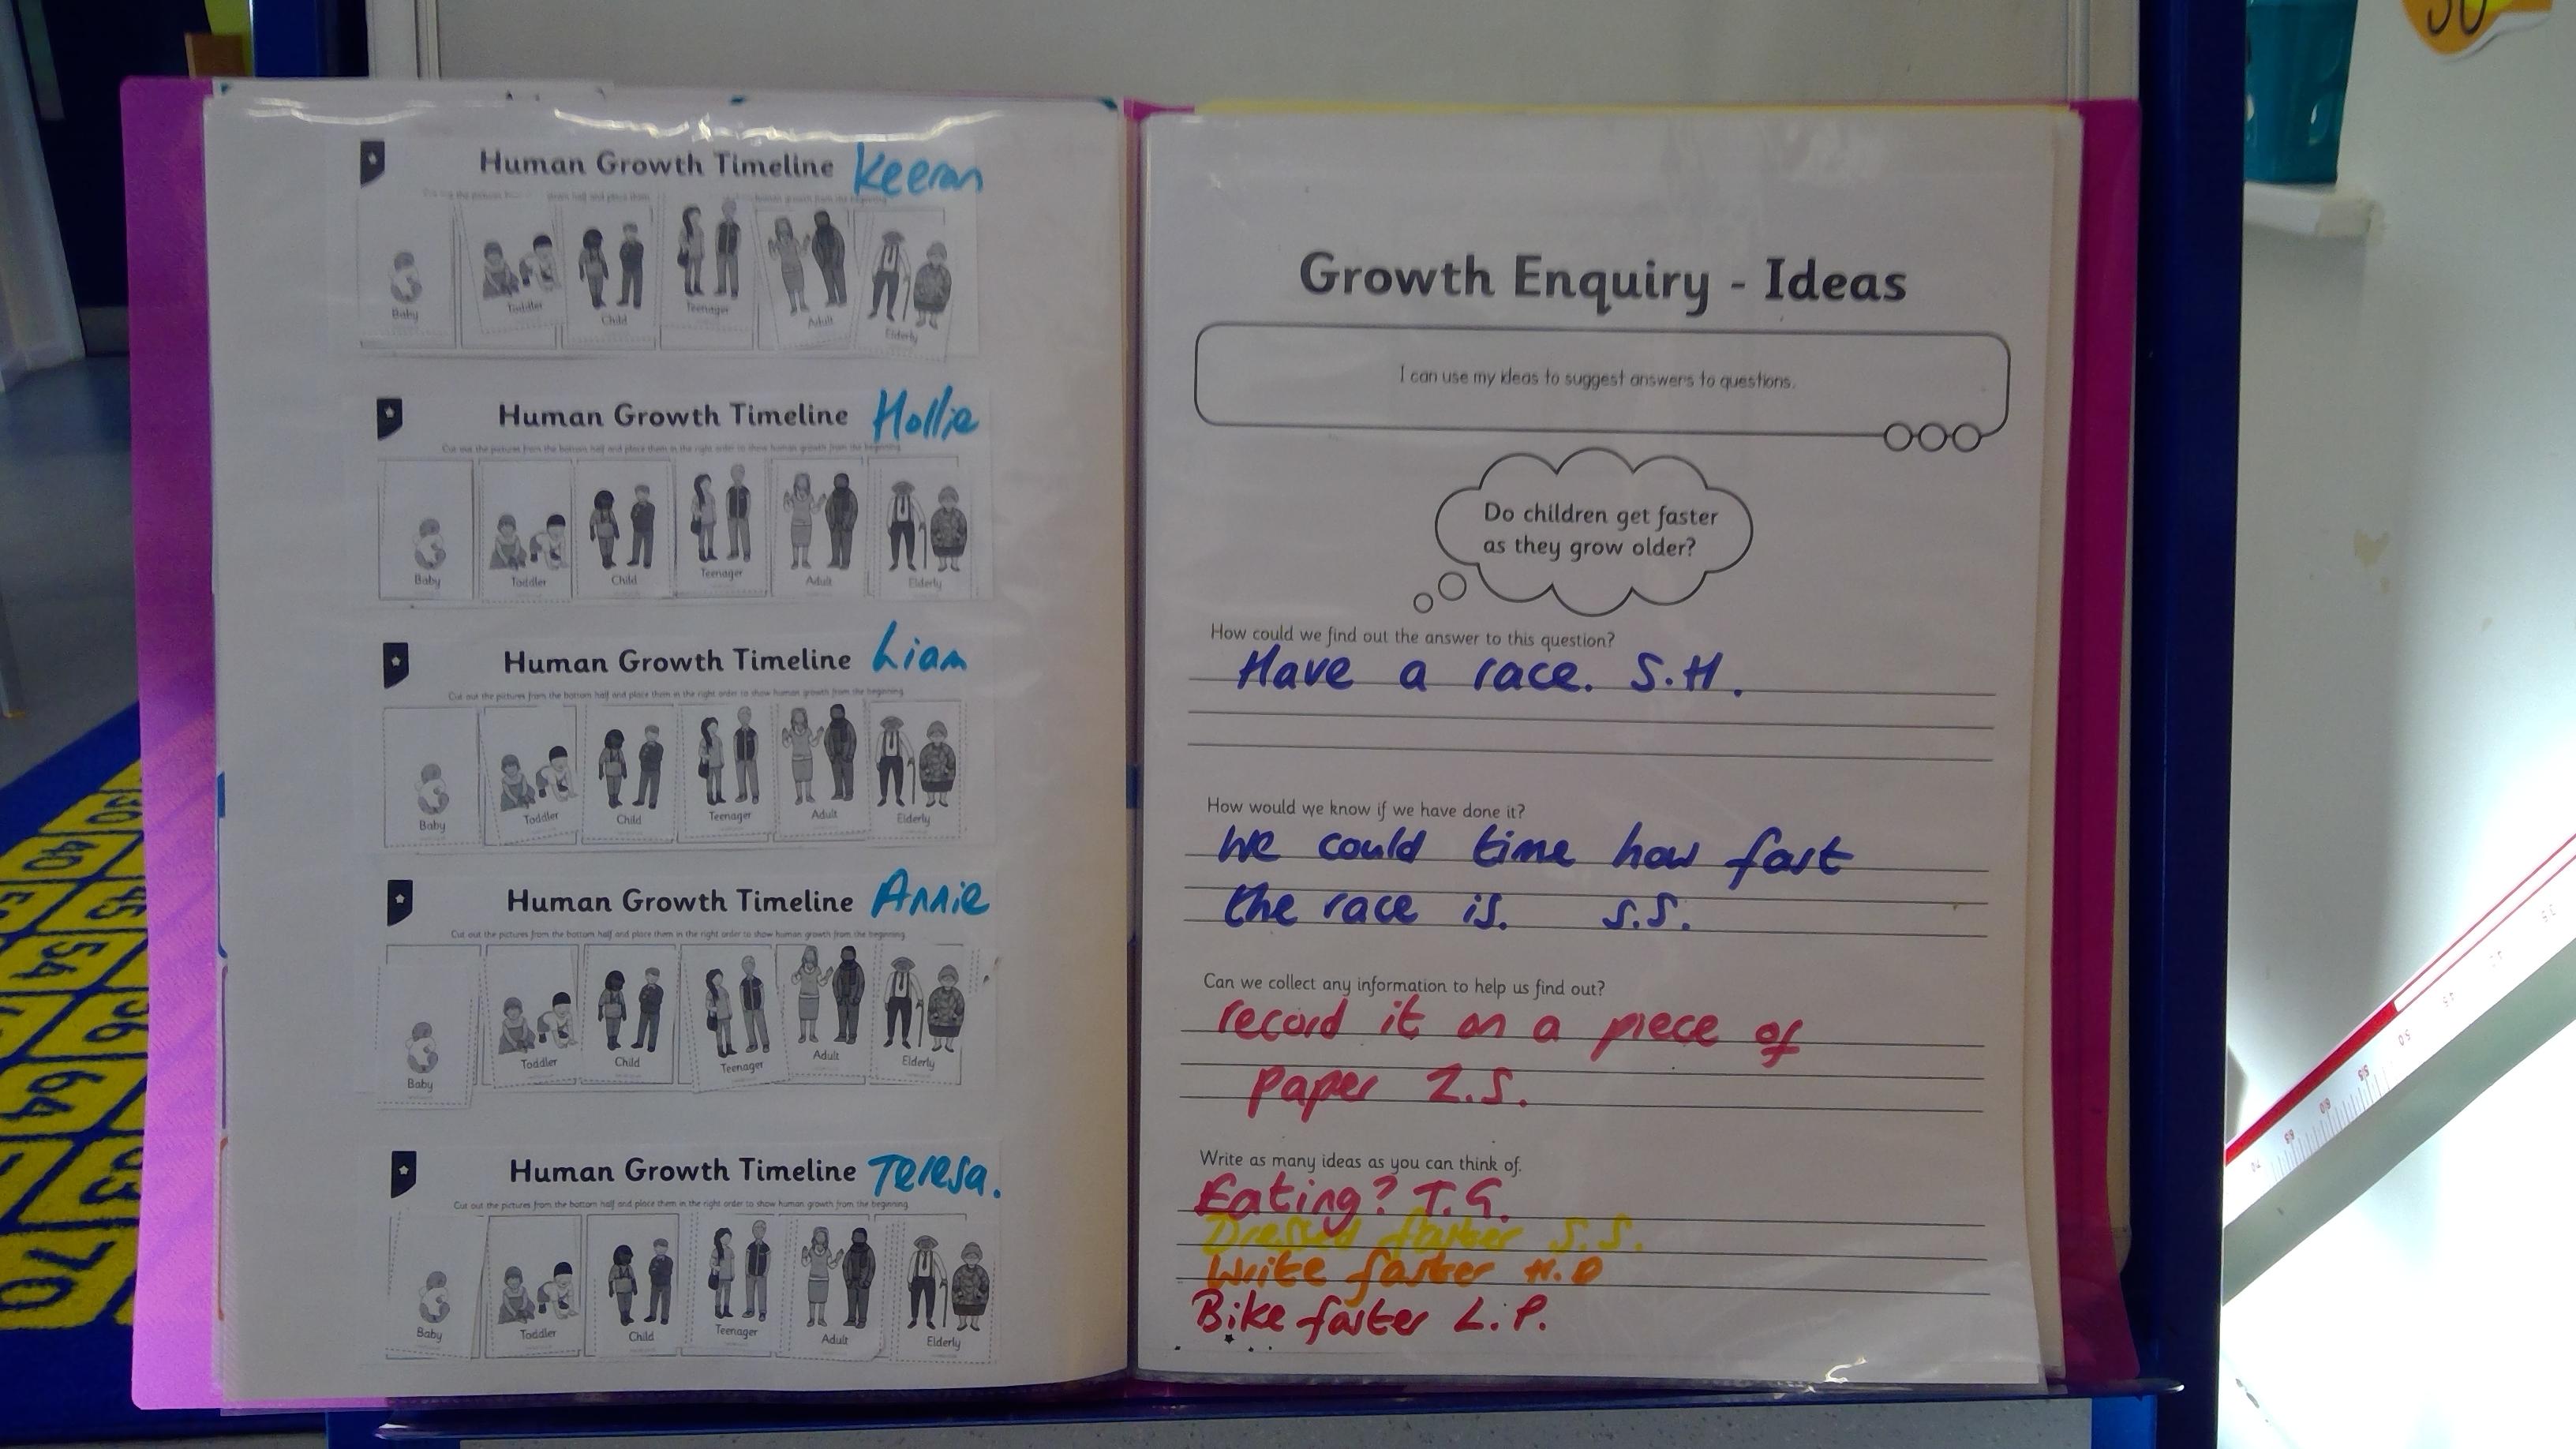 Human Growth Timeline Keeran
Baby
Toddler
Child
Teenager
Adult
Elderly
Human Growth Timeline Hollie
Cut out the pictures from the bottom half and place them in the right order to show human growth from the beginning.
Baby
Toddler
Child
Teenager
Adult
Elderly
Human Growth Timeline Liam
Cut out the pictures from the bottom half and place them in the right order to show human growth from the beginning.
Baby
Toddler
Child
Teenager
Adult
Elderly
Human Growth Timeline Annie
Cut out the pictures from the bottom half and place them in the right order to show human growth from the beginning.
Baby
Toddler
Child
Teenager
Adult
Elderly
Human Growth Timeline Teresa.
Cut out the pictures from the bottom half and place them in the right order to show human growth from the beginning.
Baby
Toddler
Child
Teenager
Adult
Elderly
Growth Enquiry - Ideas
I can use my ideas to suggest answers to questions.
Do children get faster
as they grow older?
How could we find out the answer to this question?
Have a race. S.H.
How would we know if we have done it?
We could time how fast
the race is. S.S.
Can we collect any information to help us find out?
record it on a piece of
paper Z.S.
Write as many ideas as you can think of.
Eating? T.G.
Dressed faster S.S.
Write faster H.D
Bike faster L.P.
40
45
54
56
64
63
70